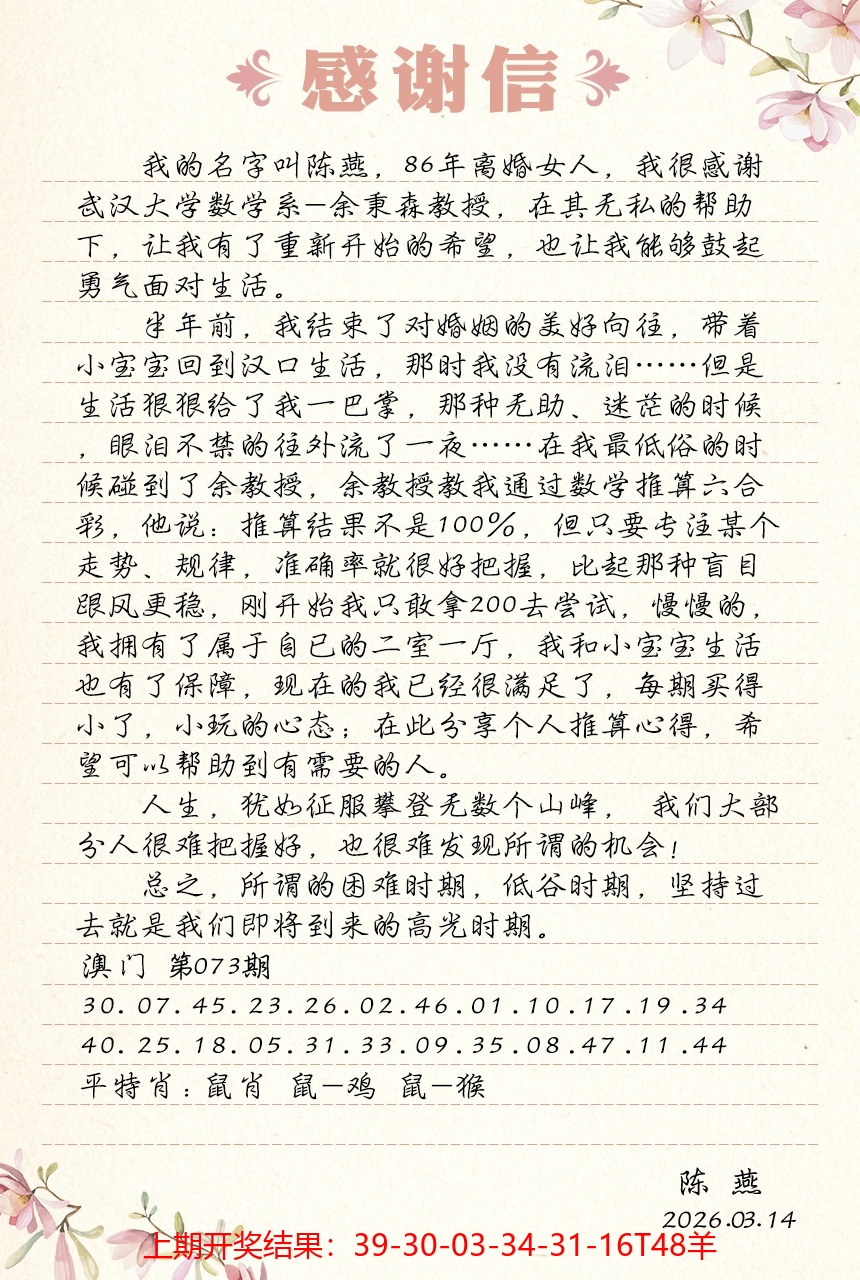 感谢信
我的名字叫陈燕，86年离婚女人，我很感谢
武汉大学数学系—余秉森教授，在其无私的帮助
下，让我有了重新开始的希望，也让我能够鼓起
勇气面对生活。
半年前，我结束了对婚姻的美好向往，带着
小宝宝回到汉口生活，那时我没有流泪……但是
生活狠狠给了我一巴掌，那种无助、迷茫的时候
，眼泪不禁的往外流了一夜……在我最低俗的时
候碰到了余教授，余教授教我通过数学推算六合
彩，他说：推算结果不是100%，但只要专注某个
走势、规律，准确率就很好把握，比起那种盲目
跟风更稳，刚开始我只敢拿200去尝试，慢慢的，
我拥有了属于自已的二室一厅，我和小宝宝生活
也有了保障，现在的我已经很满足了，每期买得
小了，小玩的心态；在此分享个人推算心得，希
望可以帮助到有需要的人。
人生，犹如征服攀登无数个山峰， 我们大部
分人很难把握好，也很难发现所谓的机会！
总之，所谓的困难时期，低谷时期，坚持过
去就是我们即将到来的高光时期。
澳门 第073期
30.07.45.23.26.02.46.01.10.17.19.34
40.25.18.05.31.33.09.35.08.47.11.44
平特肖：鼠肖 鼠—鸡 鼠—猴
陈 燕
2026.03.14
上期开奖结果：39-30-03-34-31-16T48羊